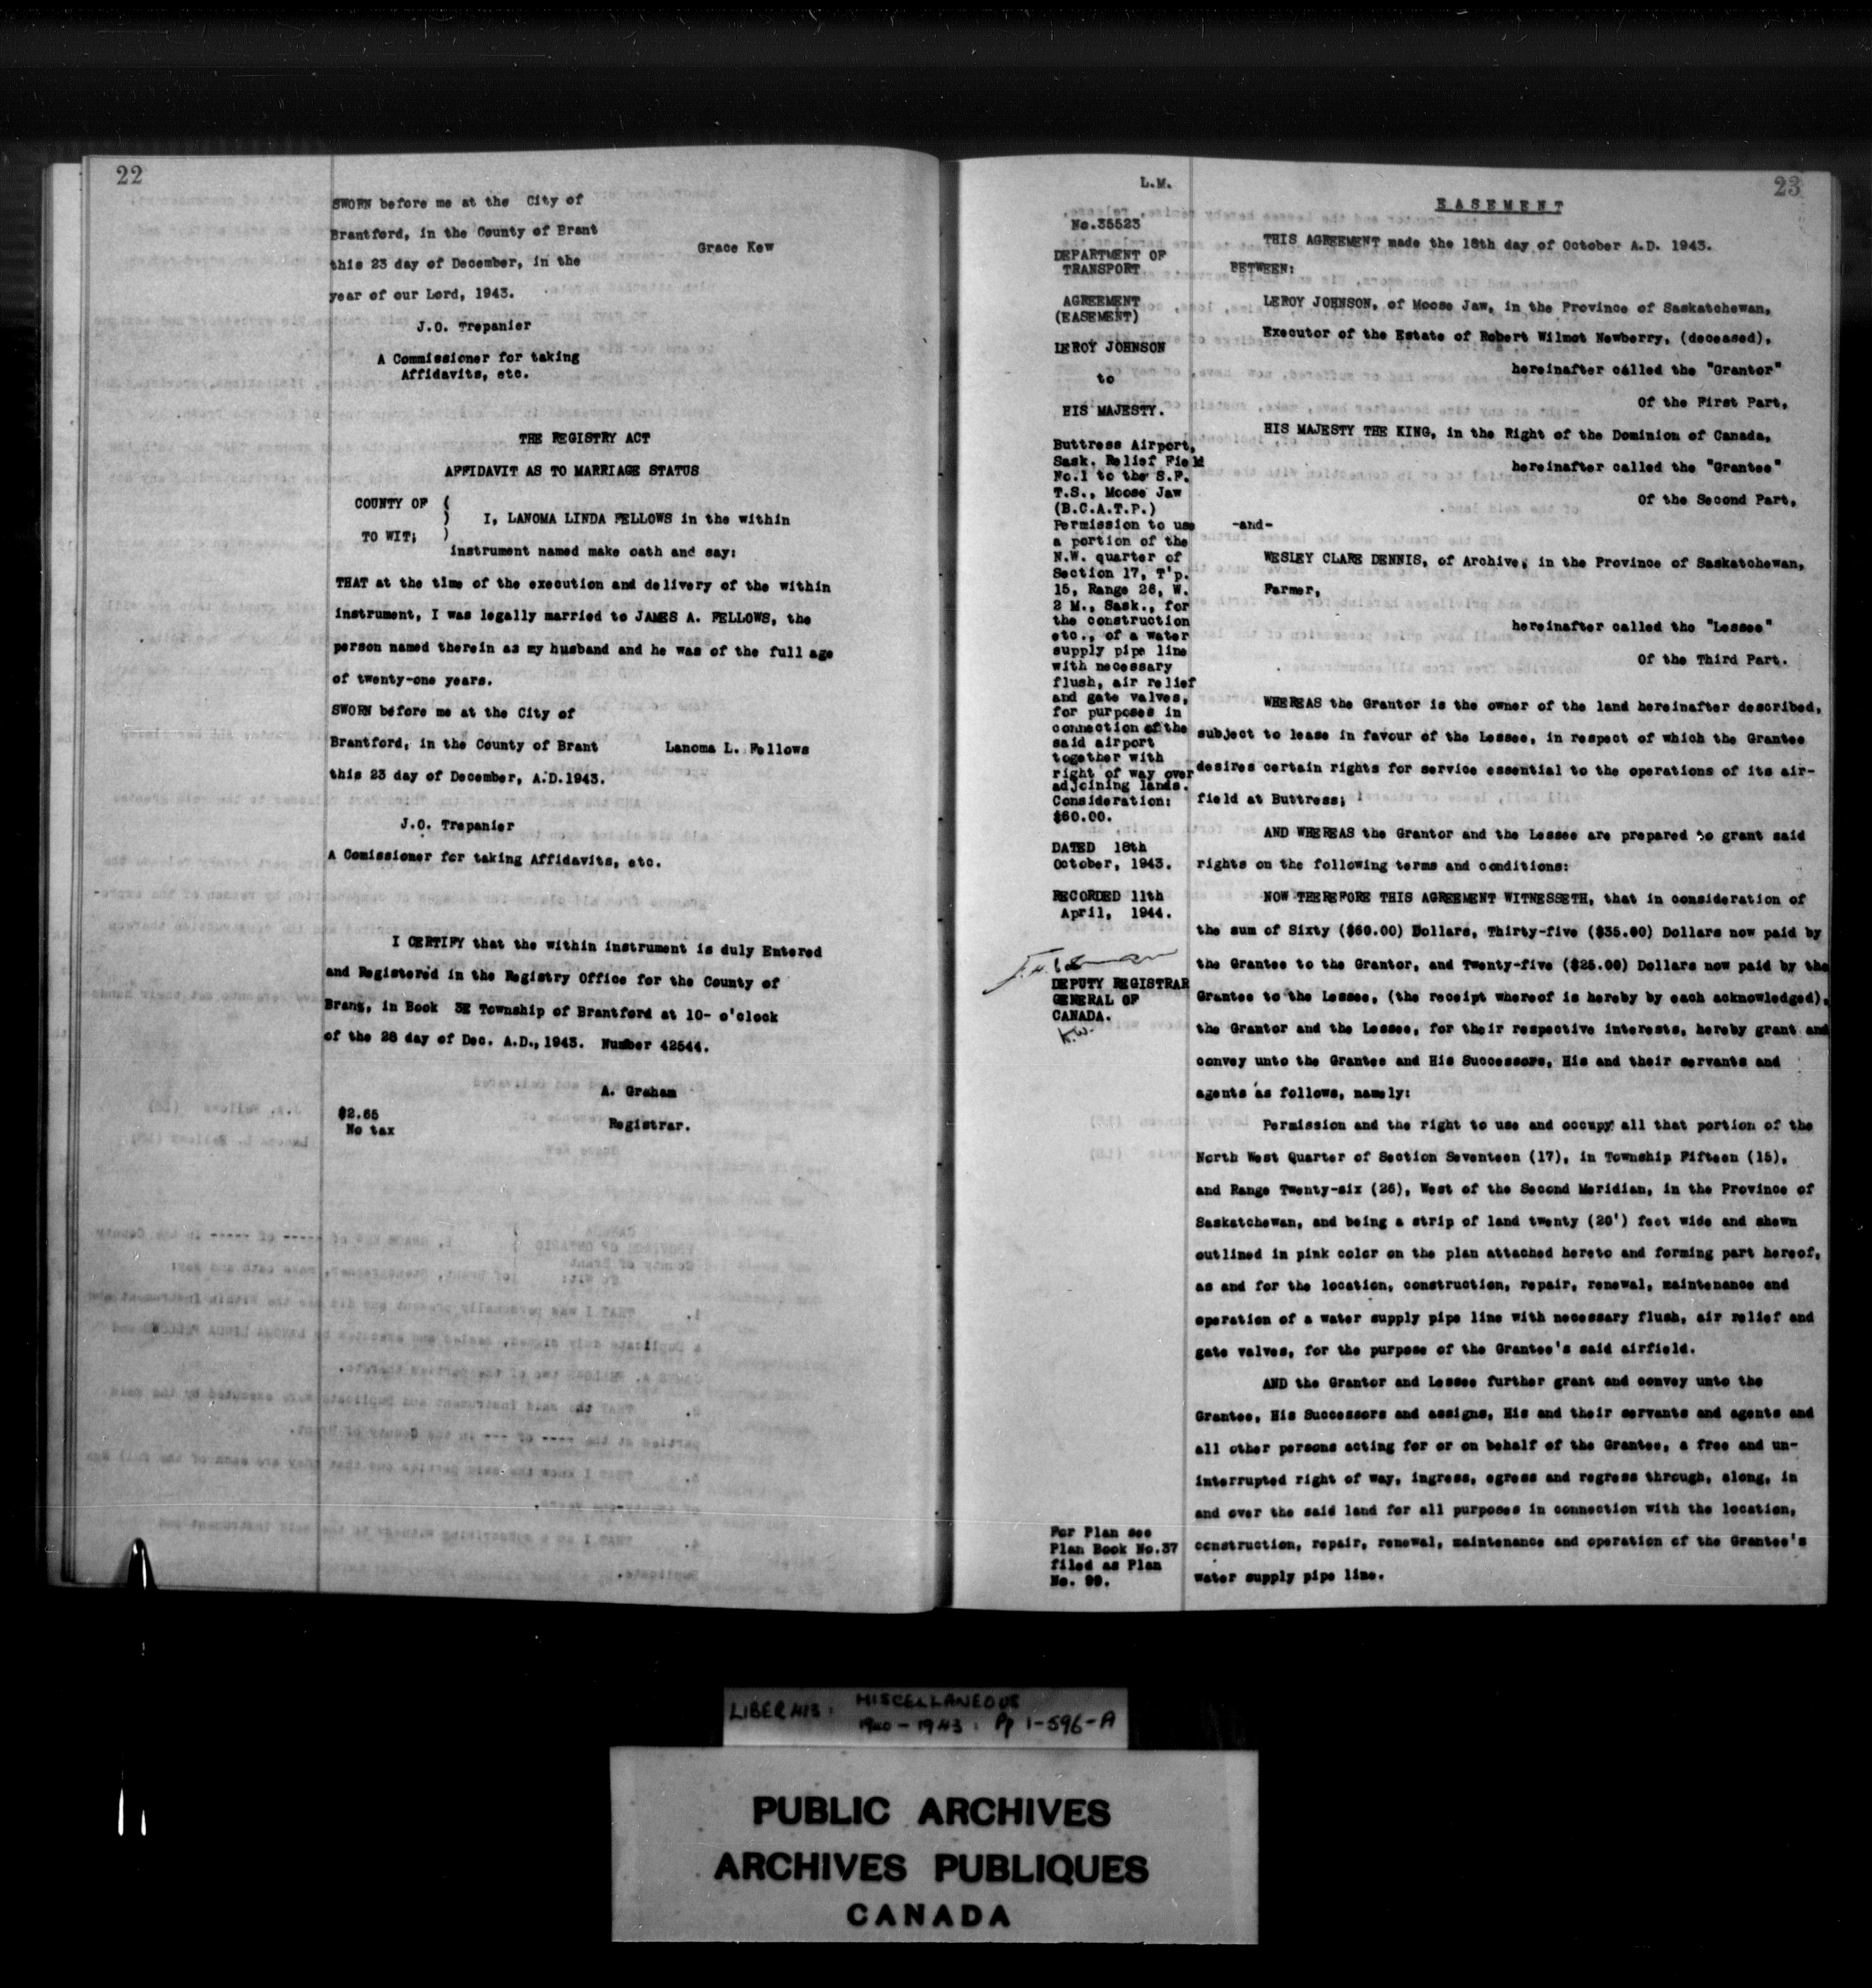 22
SWORN before me at the City of
Brantford, in the County of Brant
Grace Kew
this 23 day of December, in the
year of our Lord, 1943.
J.O. Trepanier
A Commissioner for taking
Affidavits, etc.
THE REGISTRY ACT
AFFIDAVIT AS TO MARRIAGE STATUS
COUNTY OF (
) I, LANOMA LINDA FELLOWS in the within
TO WIT; )
instrument named make oath and say:
THAT at the time of the execution and delivery of the within
instrument, I was legally married to JAMES A. FELLOWS, the
person named therein as my husband and he was of the full age
of twenty-one years.
SWORN before me at the City of
Brantford, in the County of Brant Lanoma L. Fellows
this 23 day of December, A.D.1943.
J.O. Trepanier
A Comissioner for taking Affidavits, etc.
I CERTIFY that the within instrument is duly Entered
and Registered in the Registry Office for the County of
Brant, in Book 3E Township of Brantford at 10- o'clock
of the 28 day of Dec. A.D.,1943. Number 42544.
A. Graham
$2.65
No tax
Registrar.
23
L.M.
No.35523
DEPARTMENT OF
TRANSPORT
AGREEMENT
(EASEMENT)
LEROY JOHNSON
to
HIS MAJESTY.
Buttress Airport,
Sask. Relief Field
No.1 to the S.F.
T.S., Moose Jaw
(B.C.A.T.P.)
Permission to use
a portion of the
N.W. quarter of
Section 17, T'p.
15, Range 26, W.
2 M., Sask., for
the construction
etc., of a water
supply pipe line
with necessary
flush, air relief
and gate valves,
for purposes in
connection of the
said airport
together with
right of way over
adjoining lands.
Consideration:
$60.00.
DATED 18th
October, 1943.
RECORDED 11th
April, 1944.
DEPUTY REGISTRAR
GENERAL OF
CANADA.
K.W.
For Plan see
Plan Book No.37
filed as Plan
No. 99.
EASEMENT
THIS AGREEMENT made the 18th day of October A.D. 1943.
BETWEEN:
LEROY JOHNSON, of Moose Jaw, in the Province of Saskatchewan,
Executor of the Estate of Robert Wilmot Newberry, (deceased),
hereinafter called the "Grantor"
Of the First Part,
HIS MAJESTY THE KING, in the Right of the Dominion of Canada,
hereinafter called the "Grantee"
Of the Second Part,
-and-
WESLEY CLARE DENNIS, of Archive, in the Province of Saskatchewan,
Farmer,
hereinafter called the "Lessee"
Of the Third Part.
WHEREAS the Grantor is the owner of the land hereinafter described,
subject to lease in favour of the Lessee, in respect of which the Grantee
desires certain rights for service essential to the operations of its air-
field at Buttress;
AND WHEREAS the Grantor and the Lessee are prepared to grant said
rights on the following terms and conditions:
NOW THEREFORE THIS AGREEMENT WITNESSETH, that in consideration of
the sum of Sixty ($60.00) Dollars, Thirty-five ($35.00) Dollars now paid by
the Grantee to the Grantor, and Twenty-five ($25.00) Dollars now paid by the
Grantee to the Lessee, (the receipt whereof is hereby by each acknowledged),
the Grantor and the Lessee, for their respective interests, hereby grant and
convey unto the Grantee and His Successors, His and their servants and
agents as follows, namely:
Permission and the right to use and occupy all that portion of the
North West Quarter of Section Seventeen (17), in Township Fifteen (15),
and Range Twenty-six (26), West of the Second Meridian, in the Province of
Saskatchewan, and being a strip of land twenty (20') feet wide and shewn
outlined in pink color on the plan attached hereto and forming part hereof,
as and for the location, construction, repair, renewal, maintenance and
operation of a water supply pipe line with necessary flush, air relief and
gate valves, for the purpose of the Grantee's said airfield.
AND the Grantor and Lessee further grant and convey unto the
Grantee, His Successors and assigns, His and their servants and agents and
all other persons acting for or on behalf of the Grantee, a free and un-
interrupted right of way, ingress, egress and regress through, along, in
and over the said land for all purposes in connection with the location,
construction, repair, renewal, maintenance and operation of the Grantee's
water supply pipe line.
LIBER 413: MISCELLANEOUS
1940-1943: Pp 1-596-A
PUBLIC ARCHIVES
ARCHIVES PUBLIQUES
CANADA